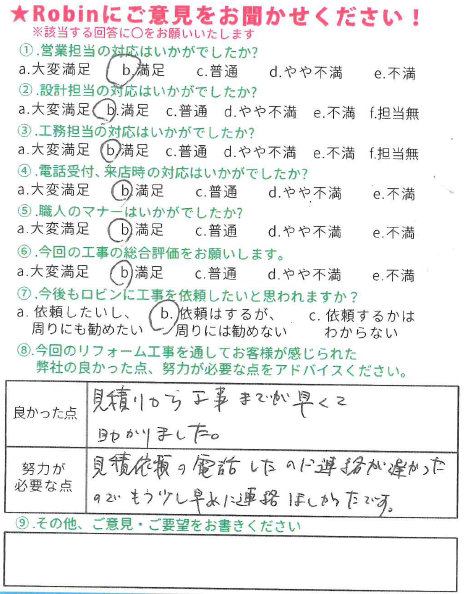 ★Robinにご意見をお聞かせください！
※該当する回答に〇をお願いいたします
①.営業担当の対応はいかがでしたか?
a.大変満足 b.満足 c.普通 d.やや不満 e.不満
②.設計担当の対応はいかがでしたか?
a.大変満足 b.満足 c.普通 d.やや不満 e.不満 f.担当無
③.工務担当の対応はいかがでしたか?
a.大変満足 b.満足 c.普通 d.やや不満 e.不満 f.担当無
④.電話受付、来店時の対応はいかがでしたか?
a.大変満足 b.満足 c.普通 d.やや不満 e.不満
⑤.職人のマナーはいかがでしたか?
a.大変満足 b.満足 c.普通 d.やや不満 e.不満
⑥.今回の工事の総合評価をお願いします。
a.大変満足 b.満足 c.普通 d.やや不満 e.不満
⑦.今後もロビンに工事を依頼したいと思われますか？
a. 依頼したいし、 b. 依頼はするが、 c. 依頼するかは
周りにも勧めたい 周りには勧めない わからない
⑧.今回のリフォーム工事を通してお客様が感じられた
弊社の良かった点、努力が必要な点をアドバイスください。
良かった点
見積りから工事までが早くて
助かりました。
努力が
必要な点
見積依頼の電話したのに連絡が遅かった
のでもう少し早めに連絡ほしかったです。
⑨.その他、ご意見・ご要望をお書きください